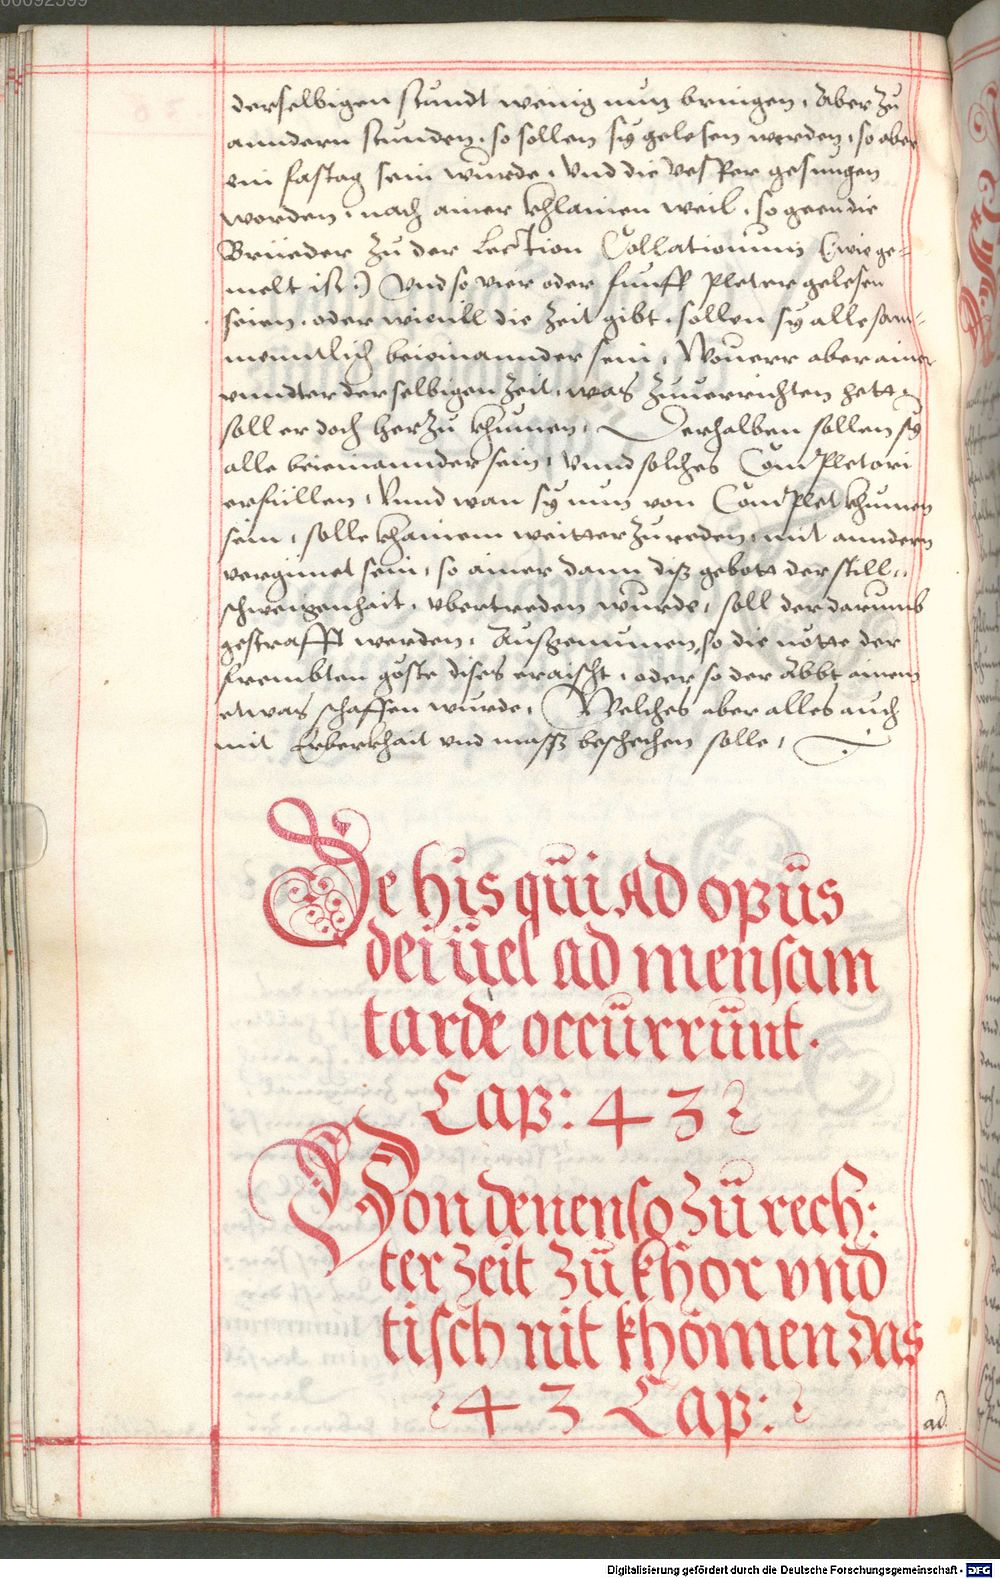 derselbigen stundt wenig nutz bringen. Aber zu
anndern stunden, so sollen sy gelesen werden, so aber
ein fastag sein wurde, Vnd die Vesper gesungen
worden, nach ainer khlainen weil, so geen die
Brüeder zu der Lection Collationum (wie ge-
melt ist.) Vnd so vier oder funff pleter gelesen
seien, oder wieuill die Zeit gibt, sollen sy alle sam-
menntlich beieinannder sein, Wouerr aber ainer
vnndter derselbigen Zeit, was zuuerrichten hett,
soll er doch herzu khumen, Derhalben sollen sy
alle beieinannder sein, Vnnd solches Completori
erfüllen, Vnnd wan sy nun von Complet khumen
sein, solle khainem weitter zu reden, mit anndern
vergünet sein, so ainer dann diß gebott der still-
schweigenhait, vbertreden wurde, soll der darumb
gestrafft werden, Außgenumen, so die nötte der
frembten göste dises eraischt, oder so der Abbt ainem
etwas schaffen wurde, Welches aber alles auch
mit Erberkhait vnd mass beschechen solle,
De his qui Ad opus
dei uel ad mensam
tarde occurrunt.
Cap: 43
Von denen so zu rech:
ter zeit zu khor vnd
tisch nit khömen das
43 Cap:
ad
Digitalisierung gefördert durch die Deutsche Forschungsgemeinschaft - DFG